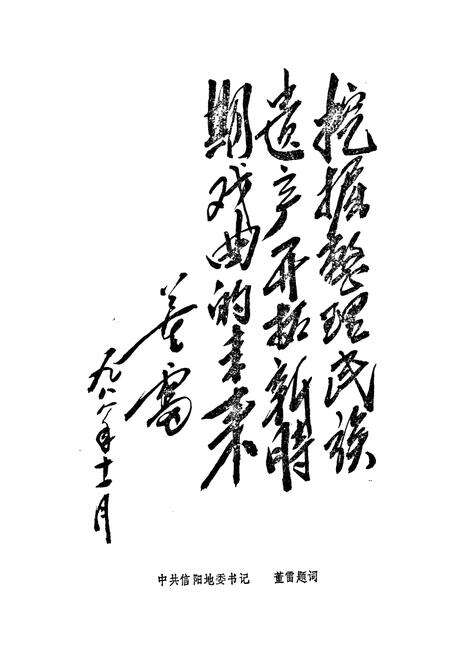 挖掘整理民族
遗产开拓新時
期戏曲的未来
董雷
一九八六年十一月
中共信阳地委书记 董雷题词